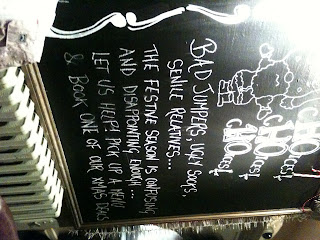 BAD JUMPERS, UGLY SOCKS,
SENILE RELATIVES...
THE FESTIVE SEASON IS CONFUSING
AND DISAPPOINTING ENOUGH...
LET US HELP! PICK UP A MENU
& BOOK ONE OF OUR XMAS DEALS
HO
HO
HO